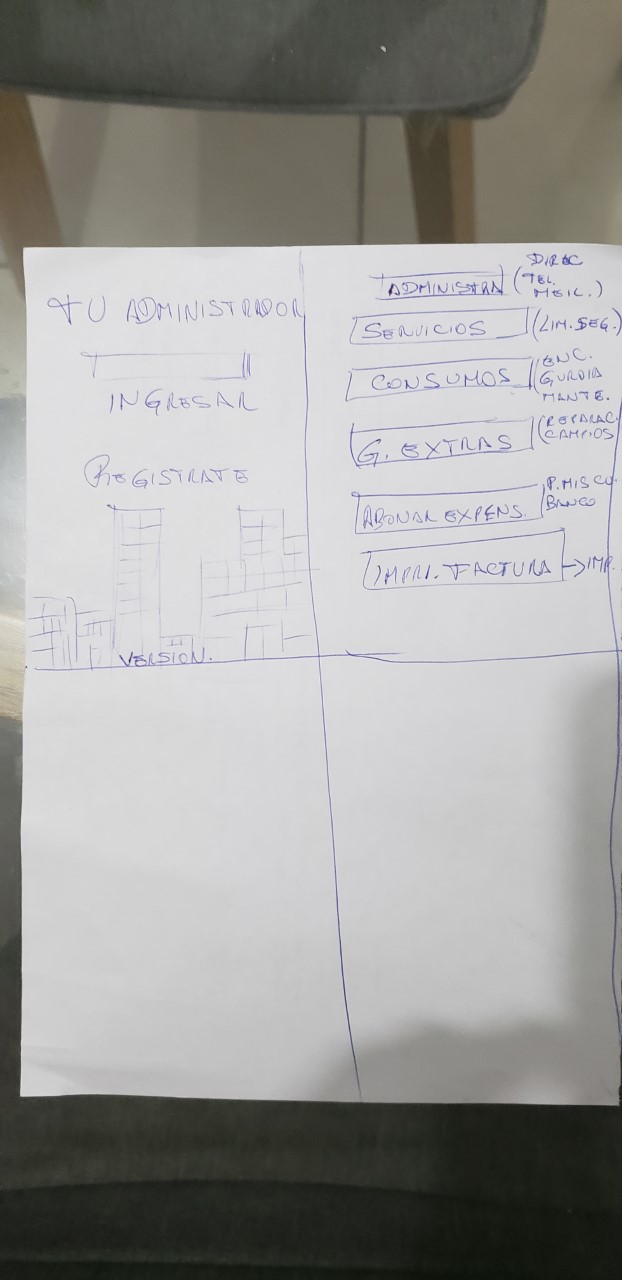 TU ADMINISTRADOR
INGRESAR
REGISTRATE
VERSION.
ADMINISTRA (DIREC
TEL.
SERVICIOS (LIM. SEG.)
CONSUMOS (ENC.
GURDIA
MANTE.
G. EXTRAS (REPARAC.
CAMPIOS
ABONAR EXPENS.
BANCO
IMPRI. FACTURA → IMP.